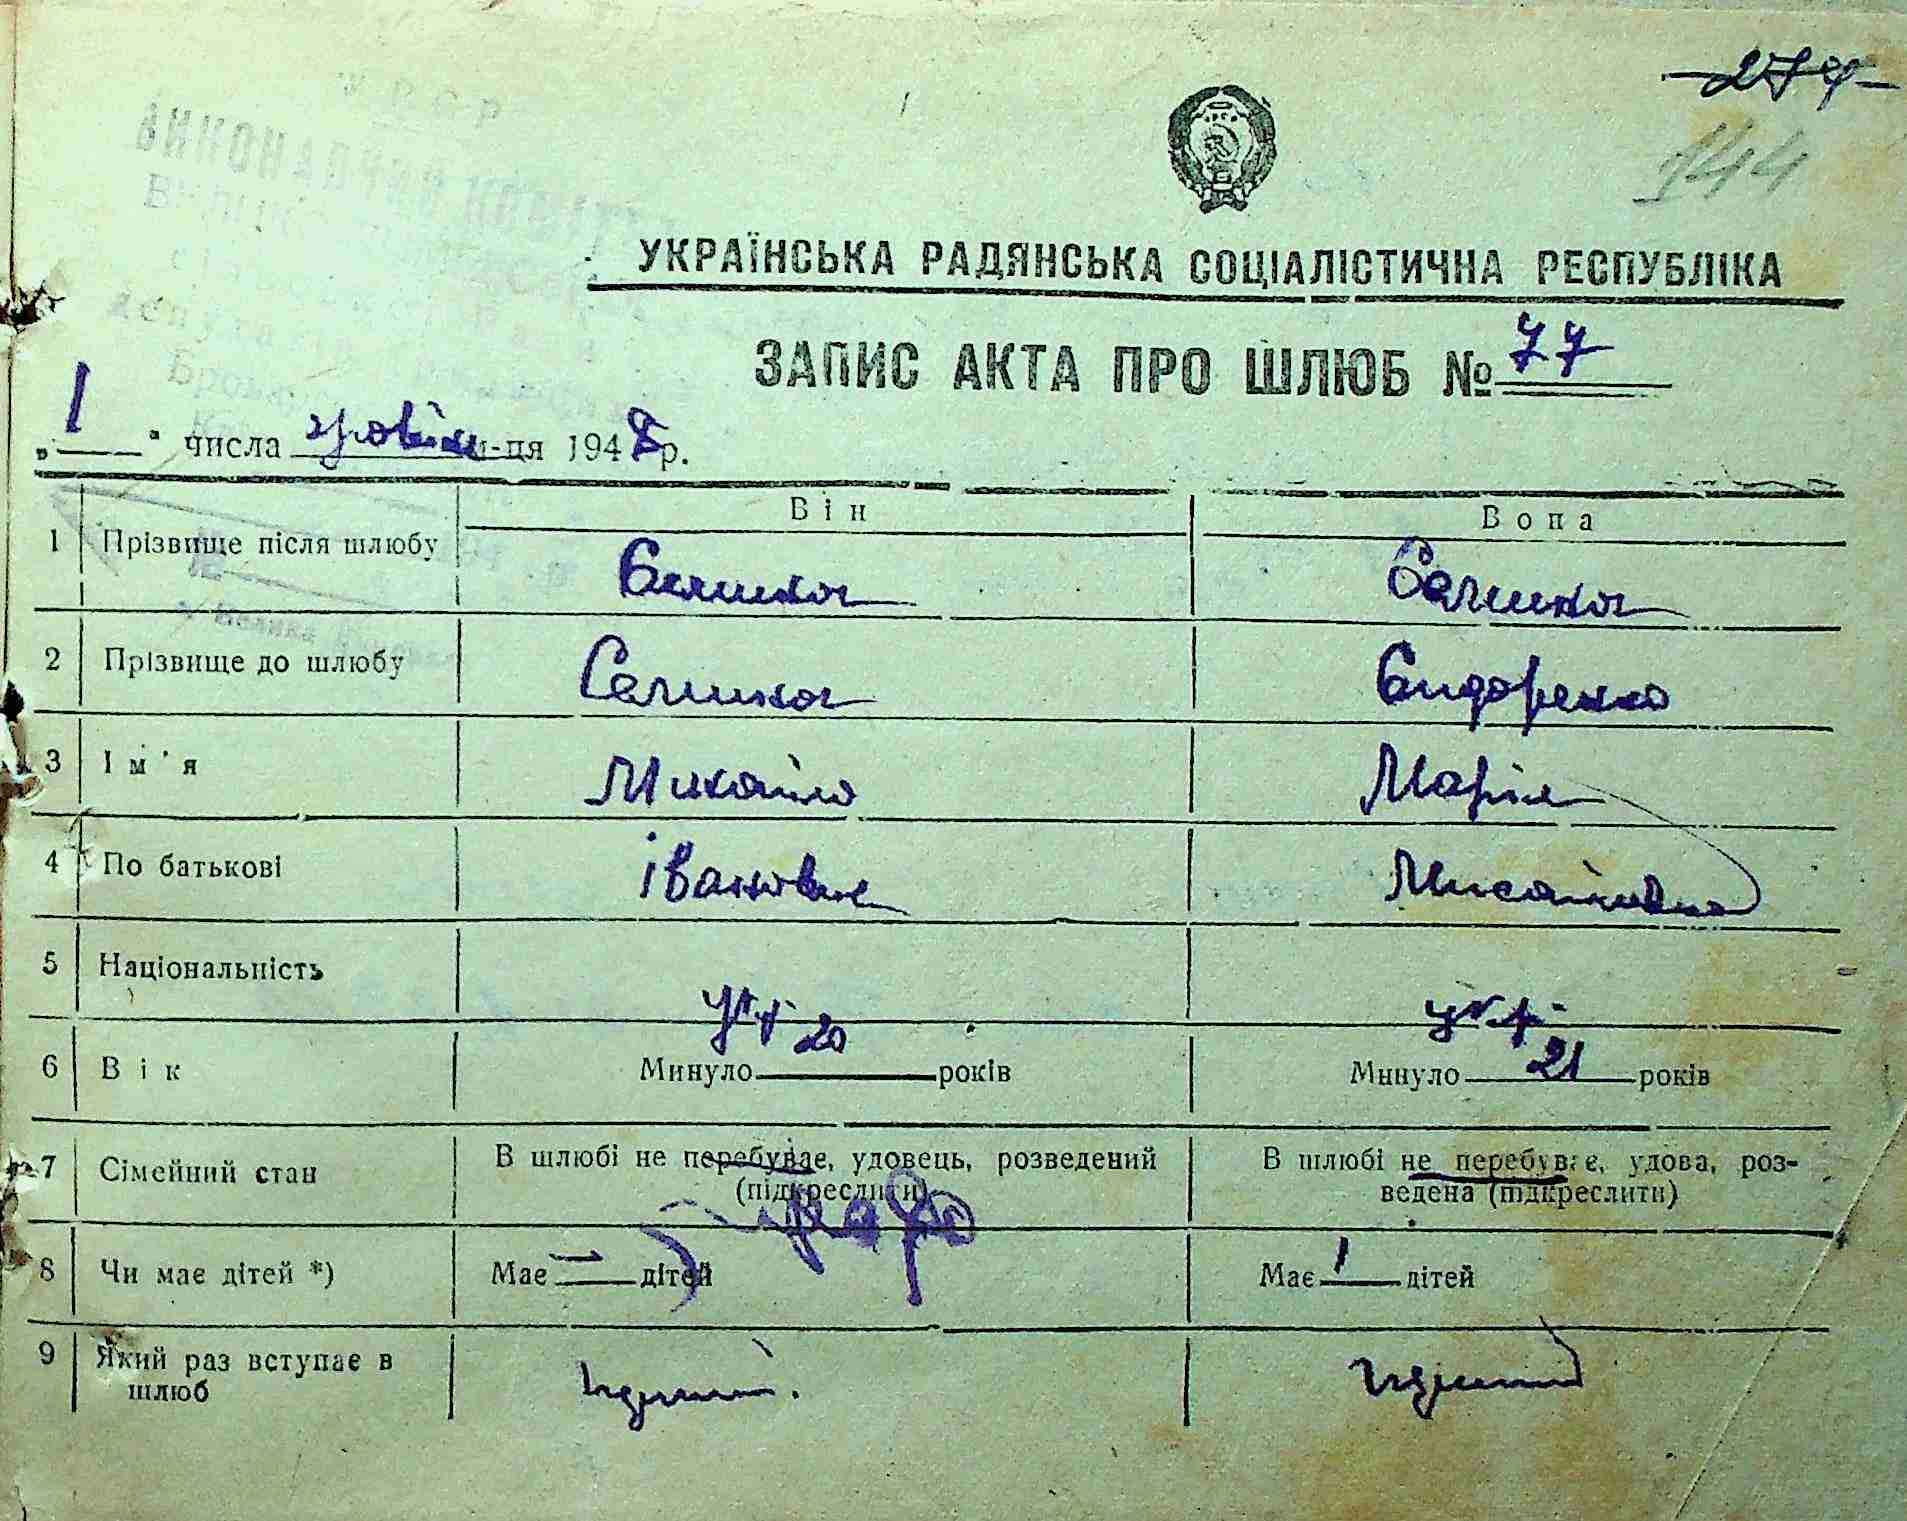 274
144
У Р С Р
ВИКОНАВЧИЙ КОМІТЕТ
УКРАЇНСЬКА РАДЯНСЬКА СОЦІАЛІСТИЧНА РЕСПУБЛІКА
ЗАПИС АКТА ПРО ШЛЮБ № 77
„ 1 “ числа м-ця 1948 р.
Він Вона
1 Прізвище після шлюбу
2 Прізвище до шлюбу Сидоренко
3 Ім'я Михайло Марія
4 По батькові Іванович Михайлівна
5 Національність укр укр
6 Вік Минуло 20 років Минуло 21 років
7 Сімейний стан В шлюбі не перебуває, удовець, розведений В шлюбі не перебуває, удова, роз-
(підкреслити) ведена (підкреслити)
8 Чи має дітей *) Має — дітей Має 1 дітей
9 Який раз вступає в перший перший
шлюб